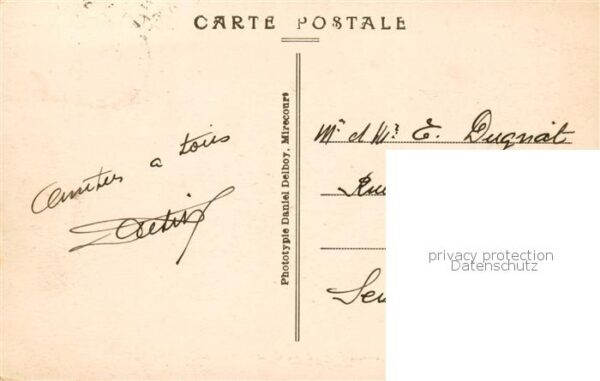 CARTE POSTALE
Amitiés a tous
Phototypie Daniel Delboy, Mirecourt
Mr et Mme E. Dugnat
Rue
privacy protection
Datenschutz